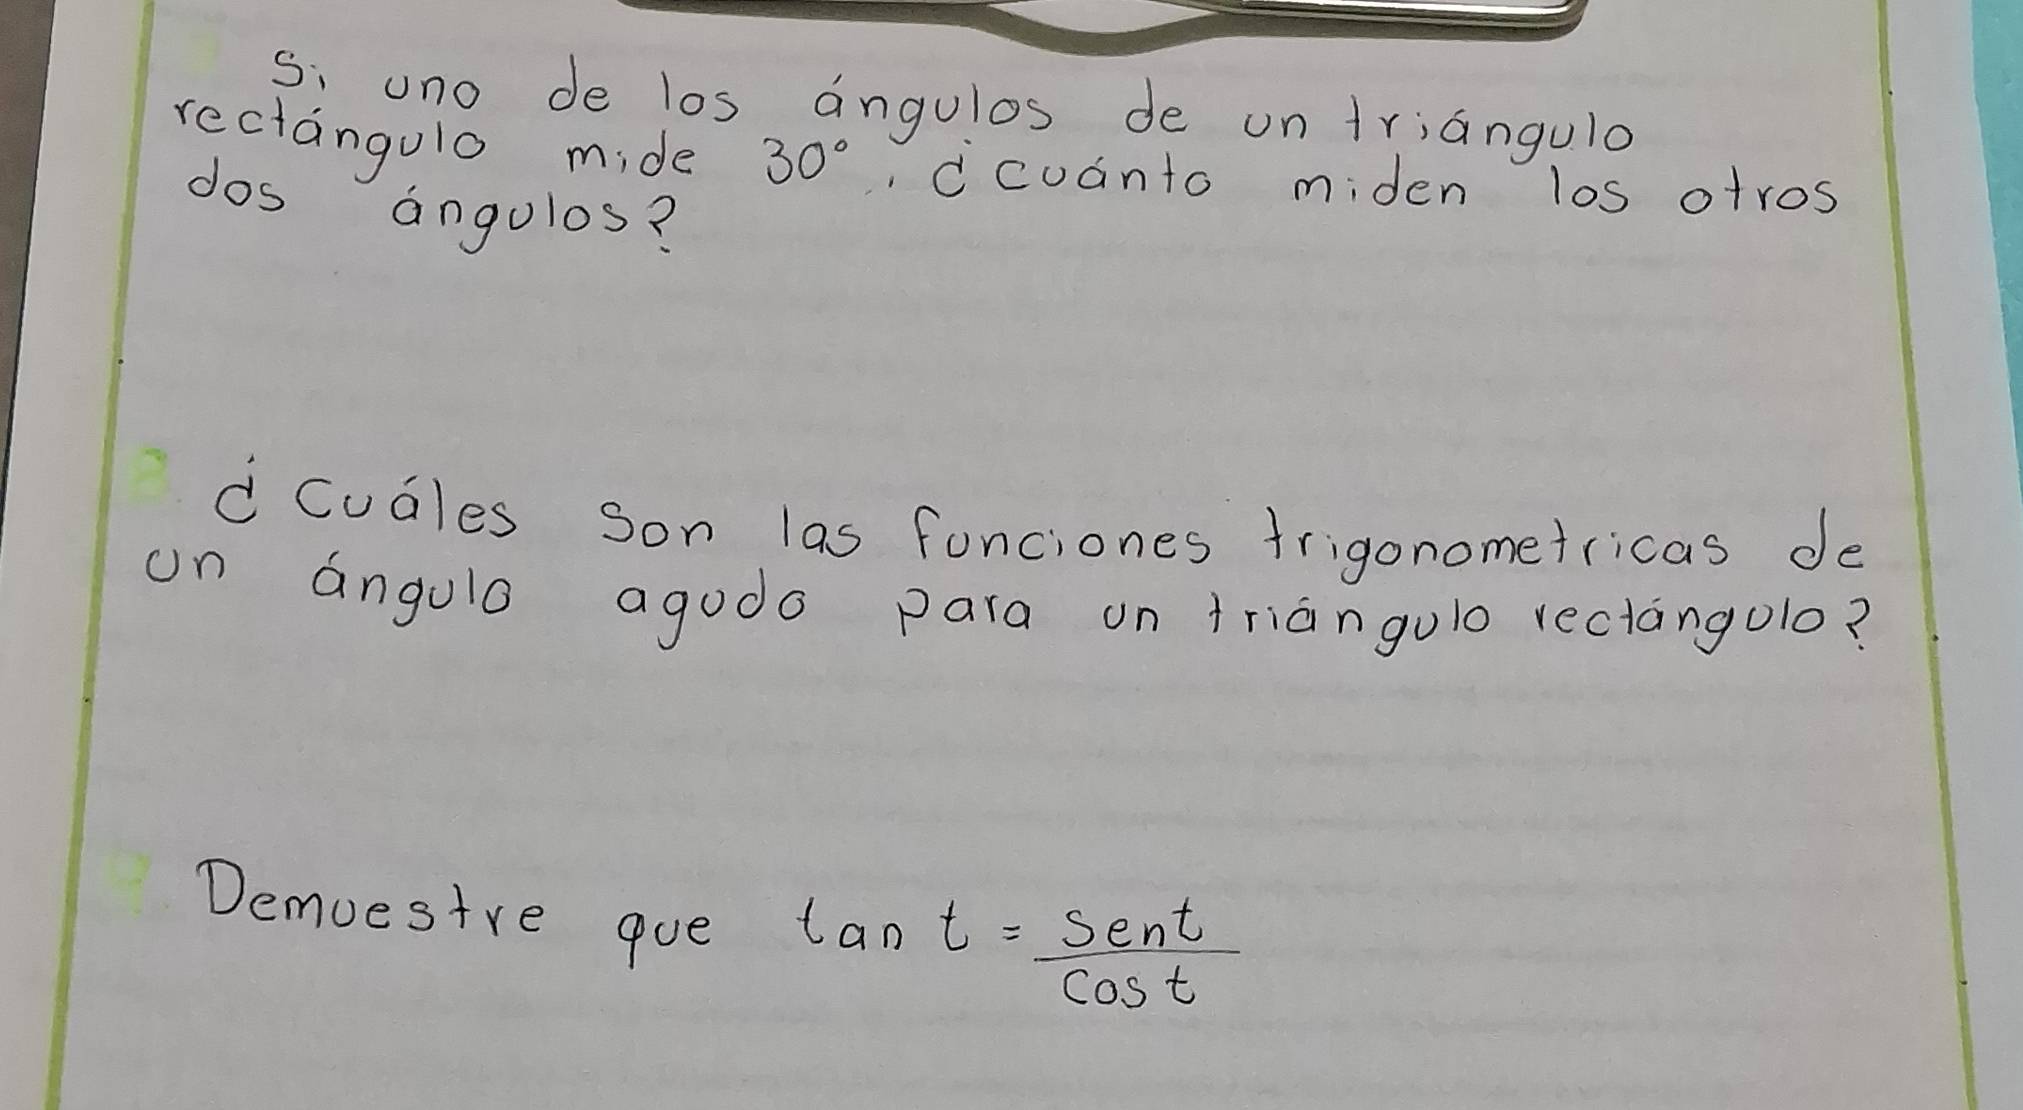 Si uno de los ángulos de un triángulo
rectángulo mide 30°, ¿cuánto miden los otros
dos ángulos?
3. ¿Cuáles son las funciones trigonometricas de
un ángulo agudo para un triángulo rectángulo?
4. Demuestre que tan t = sent / cos t